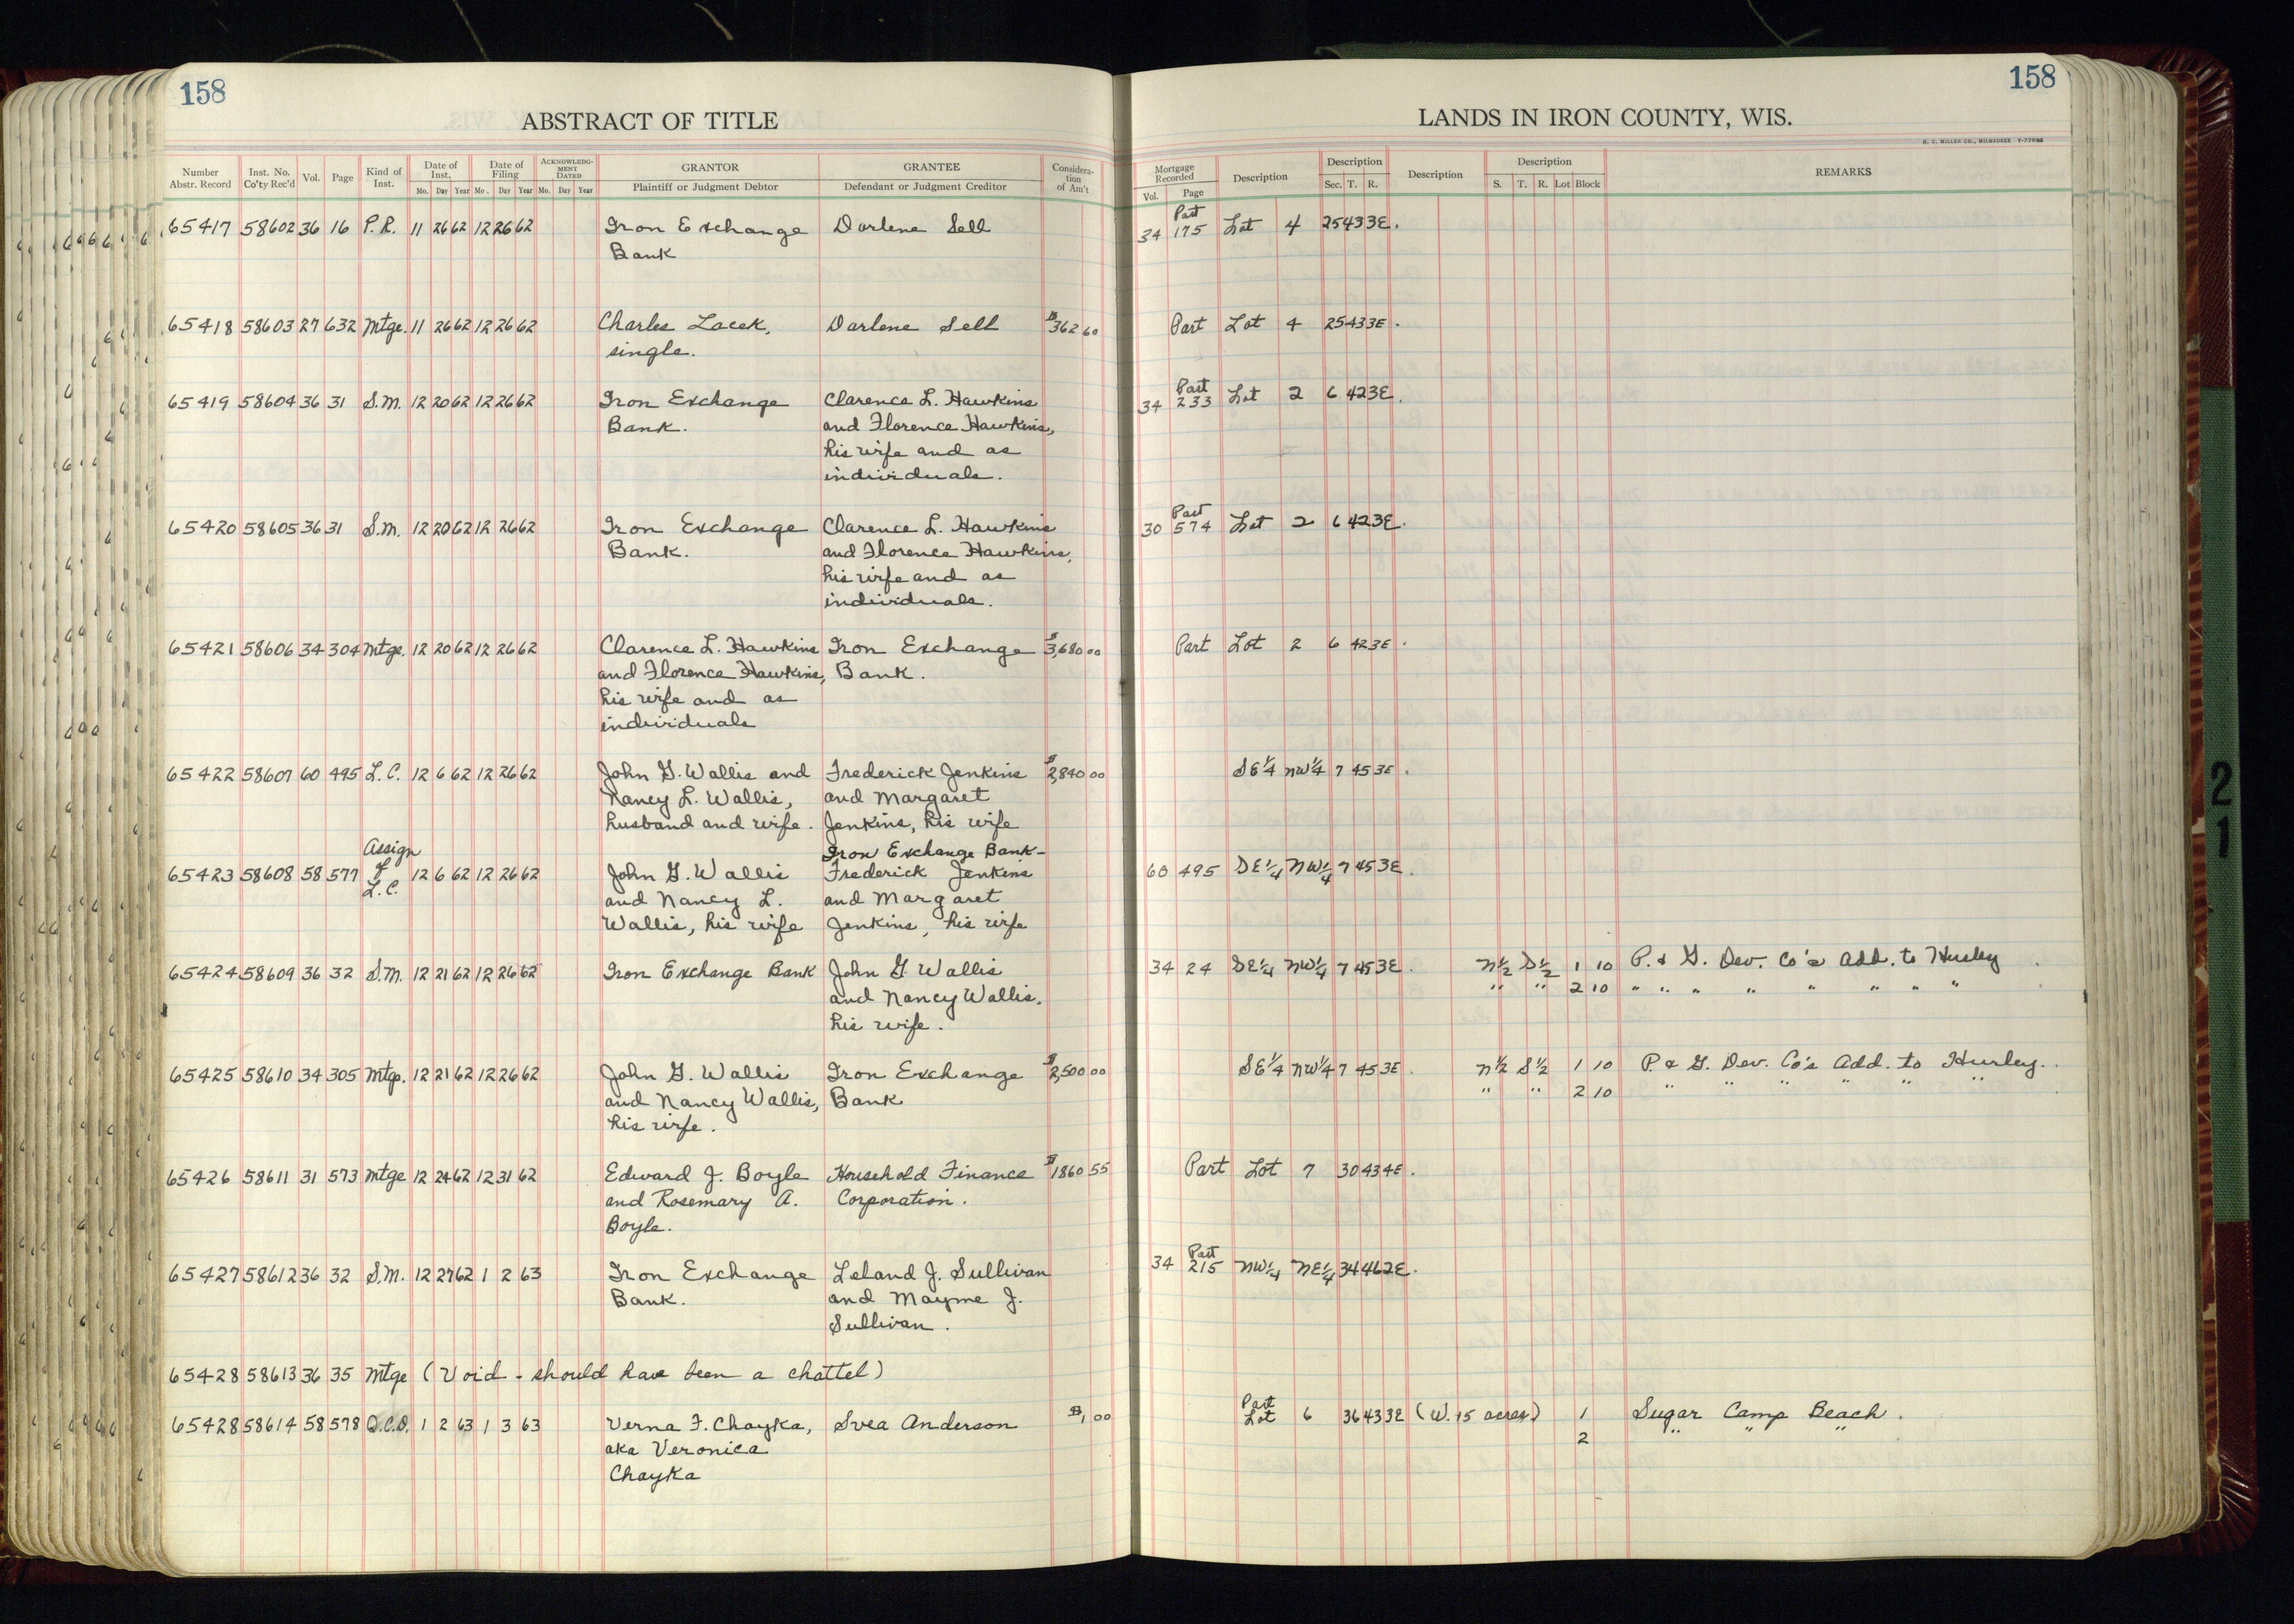 158
158
ABSTRACT OF TITLE
LANDS IN IRON COUNTY, WIS.
H. C. MILLER CO., MILWAUKEE
Number Abstr. Record | Inst. No. Co'ty Rec'd | Vol. | Page | Kind of Inst. | Date of Inst. Mo. Day Year | Date of Filing Mo. Day Year | ACKNOWLEDGMENT DATED Mo. Day Year | GRANTOR Plaintiff or Judgment Debtor | GRANTEE Defendant or Judgment Creditor | Consideration of Am't | Mortgage Recorded Vol. Page | Description | Description Sec. T. R. | Description | Description S. T. R. Lot Block | REMARKS
65417 58602 36 16 P.R. 11 26 62 12 26 62 Iron Exchange Darlene Sell 34 Part 175 Lot 4 25 43 3E.
Bank
65418 58603 27 632 Mtge. 11 26 62 12 26 62 Charles Lacek, Darlene Sell $362 60 Part Lot 4 25 43 3E.
single.
65419 58604 36 31 S.M. 12 20 62 12 26 62 Iron Exchange Clarence L. Hawkins 34 Part 233 Lot 2 6 42 3E.
Bank. and Florence Hawkins,
his wife and as
individuals.
65420 58605 36 31 S.M. 12 20 62 12 26 62 Iron Exchange Clarence L. Hawkins 30 Part 574 Lot 2 6 42 3E.
Bank. and Florence Hawkins,
his wife and as
individuals.
65421 58606 34 304 Mtge. 12 20 62 12 26 62 Clarence L. Hawkins Iron Exchange $3,680 00 Part Lot 2 6 42 3E.
and Florence Hawkins, Bank.
his wife and as
individuals
65422 58607 60 495 L.C. 12 6 62 12 26 62 John G. Wallis and Frederick Jenkins $2,840 00 SE1/4 NW1/4 7 45 3E.
Nancy L. Wallis, and Margaret
husband and wife. Jenkins, his wife
Assign Iron Exchange Bank-
65423 58608 58 577 of L.C. 12 6 62 12 26 62 John G. Wallis Frederick Jenkins 60 495 SE1/4 NW1/4 7 45 3E.
and Nancy L. and Margaret
Wallis, his wife Jenkins, his wife
65424 58609 36 32 S.M. 12 21 62 12 26 62 Iron Exchange Bank John G Wallis 34 24 SE1/4 NW1/4 7 45 3E. N1/2 S1/2 1 10 P. & G. Dev. Co's Add. to Hurley
and Nancy Wallis, " " 2 10 " " " " " " " "
his wife.
65425 58610 34 305 Mtge. 12 21 62 12 26 62 John G. Wallis Iron Exchange $2,500 00 SE1/4 NW1/4 7 45 3E. N1/2 S1/2 1 10 P & G. Dev. Co's Add. to Hurley.
and Nancy Wallis, Bank " " 2 10 " " " " " "
his wife.
65426 58611 31 573 Mtge 12 24 62 12 31 62 Edward J. Boyle Household Finance $1860 55 Part Lot 7 30 43 4E.
and Rosemary A. Corporation.
Boyle.
65427 58612 36 32 S.M. 12 27 62 1 2 63 Iron Exchange Leland J. Sullivan 34 Part 215 NW1/4 NE1/4 34 46 2E.
Bank. and Mayme J.
Sullivan.
65428 58613 36 35 Mtge (Void - should have been a chattel)
65428 58614 58 578 Q.C.D. 1 2 63 1 3 63 Verna F. Chayka, Svea Anderson $1,00 Part Lot 6 36 43 3E (W. 15 acres) 1 Sugar Camp Beach.
aka Veronica 2 " " "
Chayka
21